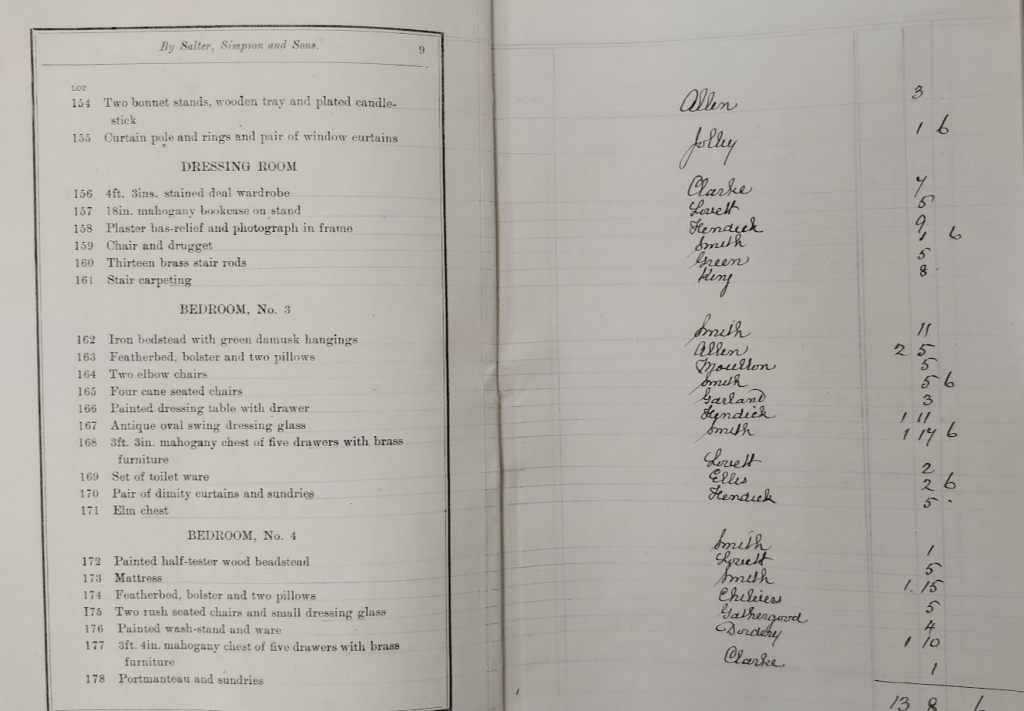 By Salter, Simpson and Sons. 9
LOT
154 Two bonnet stands, wooden tray and plated candle-
stick
155 Curtain pole and rings and pair of window curtains
DRESSING ROOM
156 4ft. 3ins. stained deal wardrobe
157 18in. mahogany bookcase on stand
158 Plaster bas-relief and photograph in frame
159 Chair and drugget
160 Thirteen brass stair rods
161 Stair carpeting
BEDROOM, No. 3
162 Iron bedstead with green damusk hangings
163 Featherbed, bolster and two pillows
164 Two elbow chairs
165 Four cane seated chairs
166 Painted dressing table with drawer
167 Antique oval swing dressing glass
168 3ft. 3in. mahogany chest of five drawers with brass
furniture
169 Set of toilet ware
170 Pair of dimity curtains and sundries
171 Elm chest
BEDROOM, No. 4
172 Painted half-tester wood beadstead
173 Mattress
174 Featherbed, bolster and two pillows
175 Two rush seated chairs and small dressing glass
176 Painted wash-stand and ware
177 3ft. 4in. mahogany chest of five drawers with brass
furniture
178 Portmanteau and sundries
Allen 3
Jolley 1 6
Clarke 7
Lovett 5
Hendick 9
Smith 1 6
Green 5
King 8
Smith 11
Allen 2 5
Moulton 5
Smith 5 6
Garland 3
Hendick 1 11
Smith 1 17 6
Lovett 2
Ellis 2 6
Hendick 5
Smith 1
Lovett 5
Smith 1 15
5
Gathergood 4
Dordery 1 10
Clarke 1
13 8 6